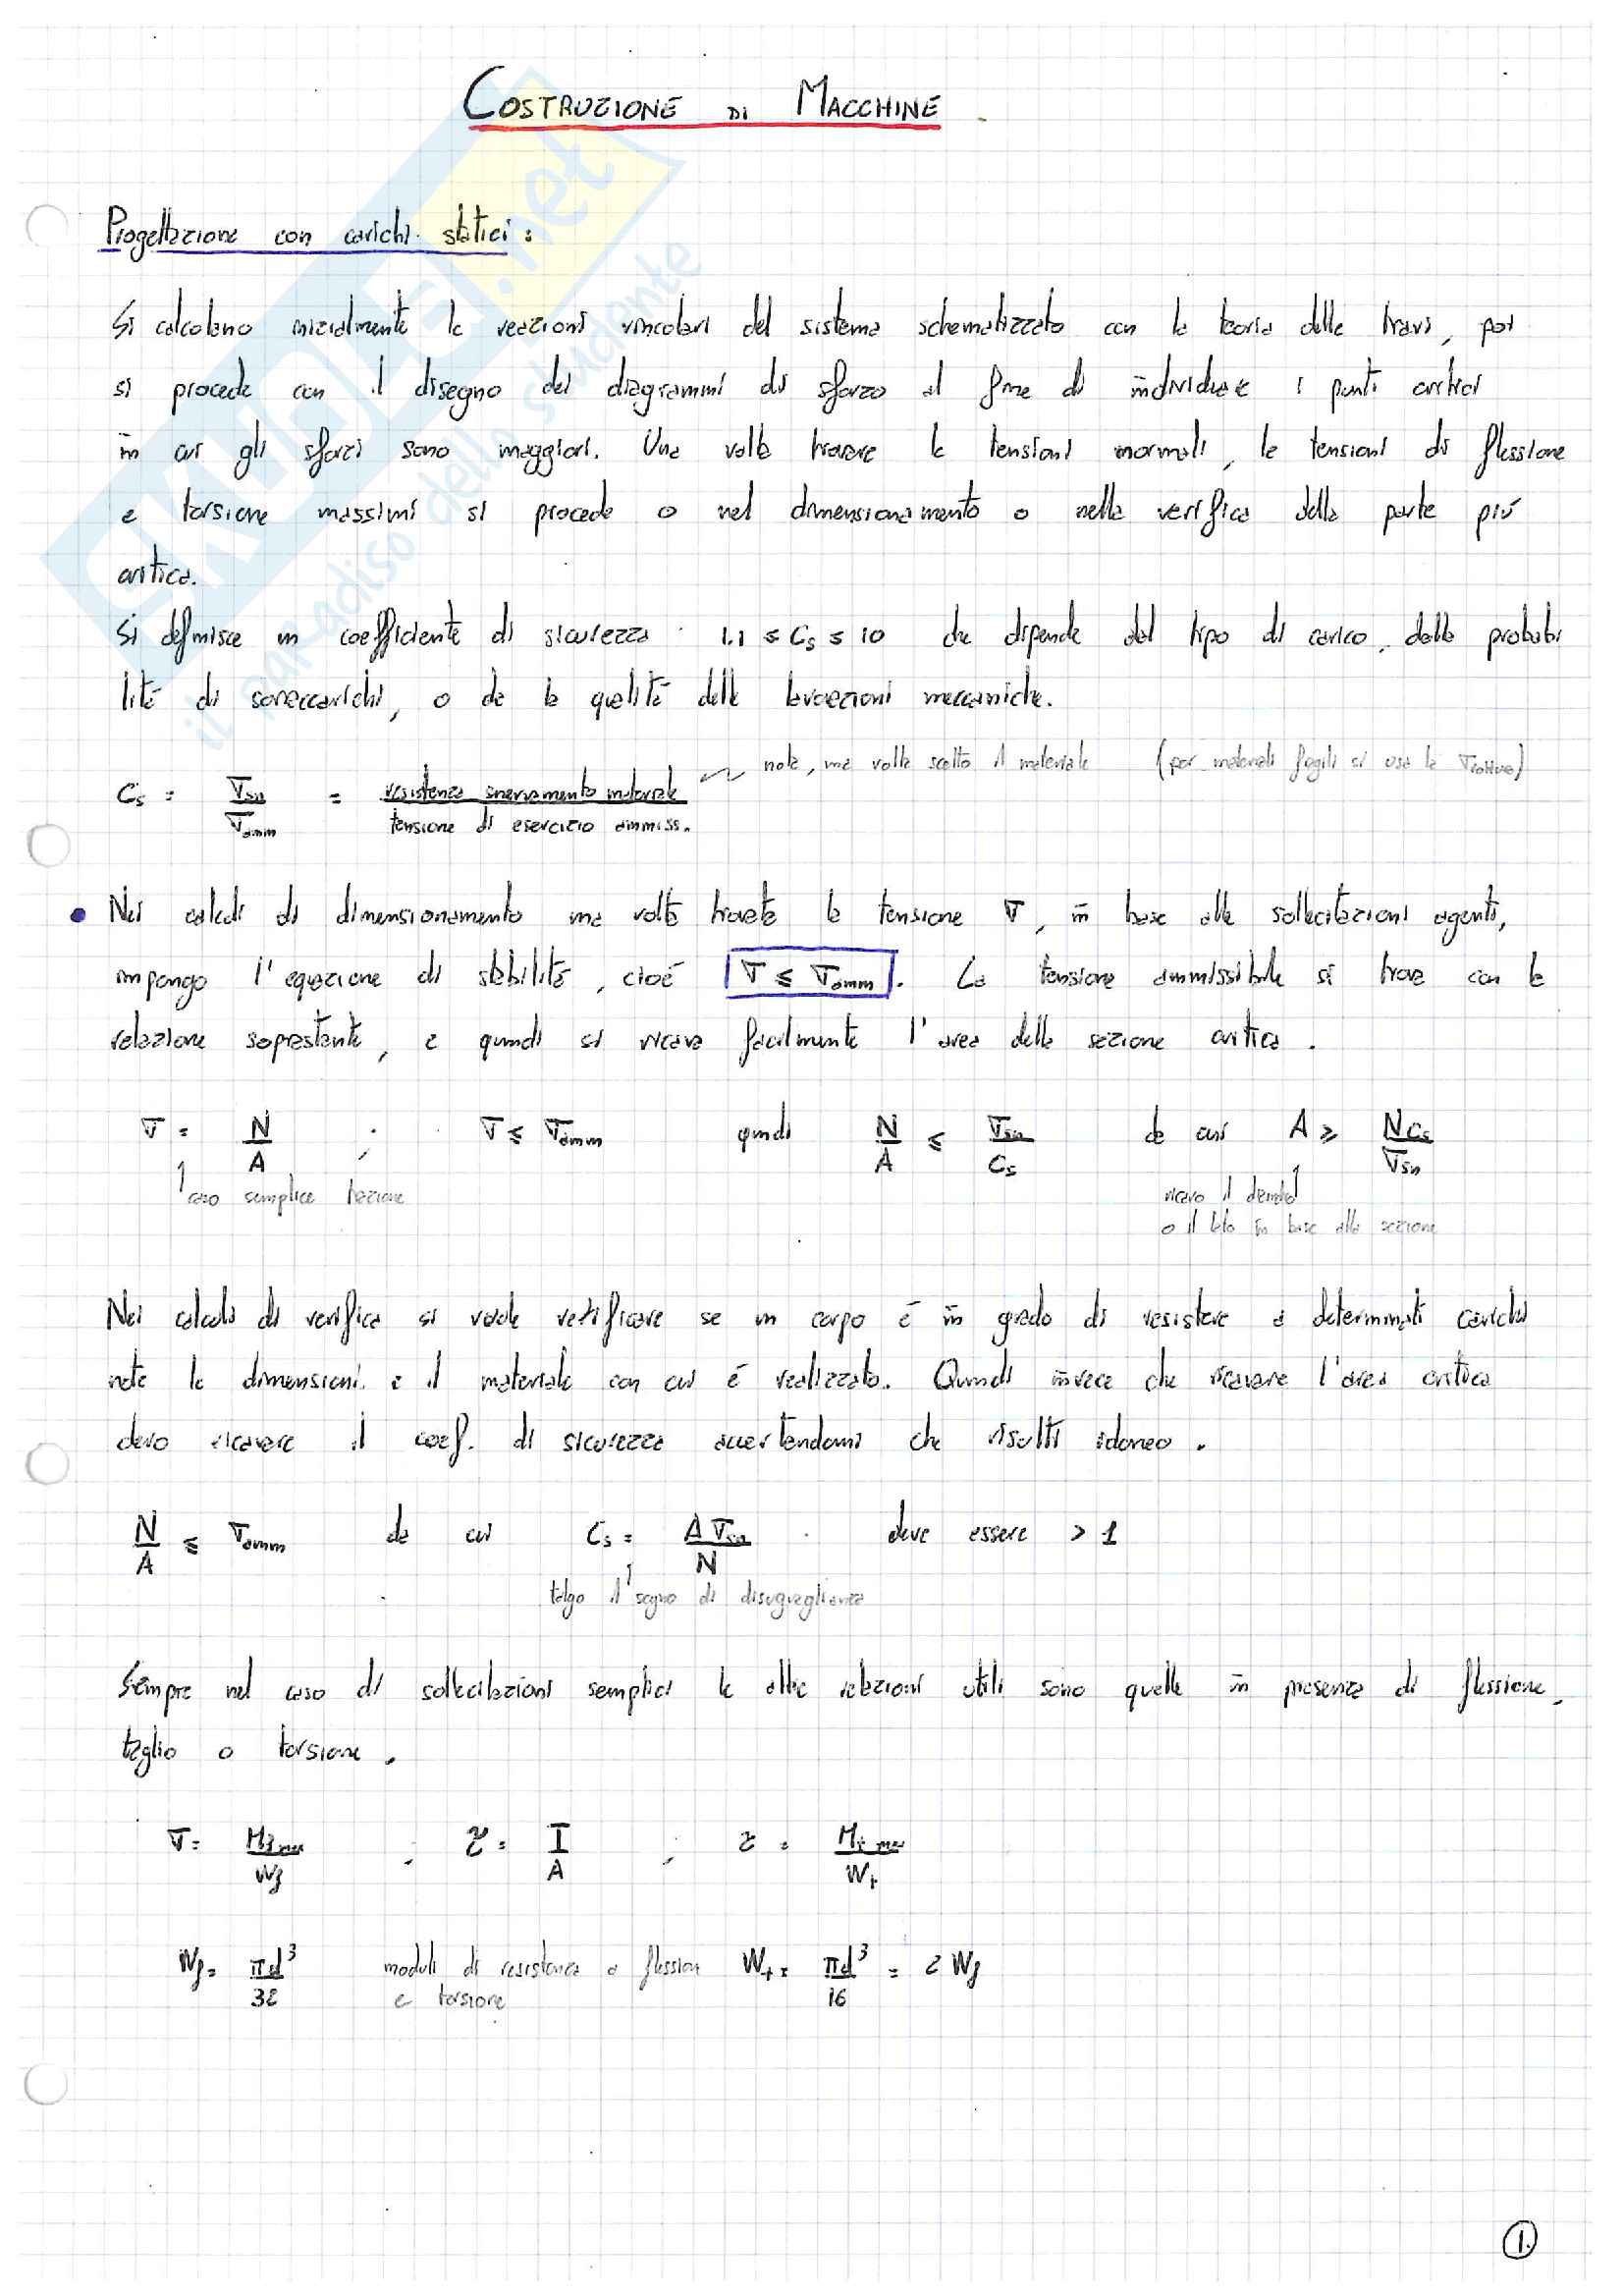 COSTRUZIONE DI MACCHINE
Progettazione con carichi statici :
Si calcolano inizialmente le reazioni vincolari del sistema schematizzato con la teoria delle travi, poi
si procede con il disegno dei diagrammi di sforzo al fine di individuare i punti critici
in cui gli sforzi sono maggiori. Una volta trovare le tensioni normali, le tensioni di flessione
e torsione massimi si procede o nel dimensionamento o nella verifica della parte più
critica.
Si definisce un coefficiente di sicurezza 1.1 ≤ Cs ≤ 10 che dipende dal tipo di carico, dalla probabi
lità di sovraccarichi, o da la qualità delle lavorazioni meccaniche.
Cs = σsn / σamm = resistenza snervamento materiale / tensione di esercizio ammiss. nota, una volta scelto il materiale (per materiali fragili si usa la σrottura)
• Nei calcoli di dimensionamento una volta trovata la tensione σ, in base alle sollecitazioni agenti,
impongo l'equazione di stabilità, cioé σ ≤ σamm. La tensione ammissibile si trova con la
relazione soprastante, e quindi si ricava facilmente l'area della sezione critica.
σ = N/A ; σ ≤ σamm quindi N/A ≤ σsn/Cs da cui A ≥ N Cs/σsn
caso semplice trazione ricavo il diametro
o il lato in base alla sezione
Nei calcoli di verifica si vuole verificare se un corpo é in grado di resistere a determinati carichi
note le dimensioni e il materiale con cui é realizzato. Quindi invece che ricavare l'area critica
devo ricavare il coef. di sicurezza accertandomi che risulti idoneo.
N/A ≤ σamm da cui Cs = A σsn/N deve essere > 1
tolgo il segno di disuguaglianza
Sempre nel caso di sollecitazioni semplici le altre relazioni utili sono quelle in presenza di flessione,
taglio o torsione.
σ = Mf max/Wf ; τ = T/A ; τ = Mt max/Wt
Wf = πd³/32 moduli di resistenza a flession Wt = πd³/16 = 2 Wf
e torsione
1.
il paradiso dello studente
.net